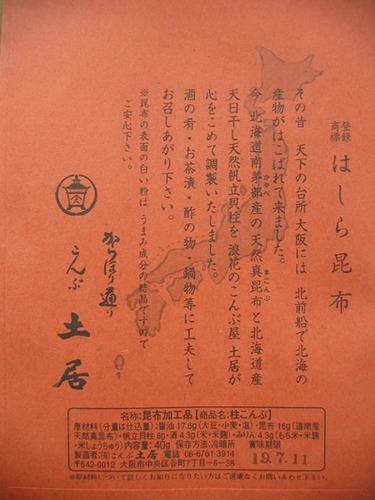 登録商標 はしら昆布
その昔 天下の台所大阪には 北前船で北海の
産物がはこばれて来ました。
今、北海道南茅部産の天然真昆布と北海道産
天日干し天然帆立貝柱を 浪花のこんぶ屋 土居が
心をこめて調製いたしました。
酒の肴・お茶漬・酢の物・鍋物等に工夫して
お召しあがり下さい。
※昆布の表面の白い粉は うまみ成分の結晶ですので
ご安心下さい。
からほり通り
こんぶ 土居
名称:昆布加工品【商品名:柱こんぶ】
原材料(分量は仕込量):醤油 17.6g(大豆・小麦・塩)・昆布 16g(道南産
天然真昆布)・帆立貝柱 8g・酒 4.3g(米・米麹)・みりん 4.3g(もち米・米麹
・米しょうちゅう)内容量:40g 保存方法:冷暗所
製造者:(有)こんぶ 土居 電話 06-6761-3914
〒542-0012 大阪市中央区谷町7丁目-6-38
19.7.11
※原材料について詳しくお知りになりたい方はご遠慮なくお問い合わせ下さい。